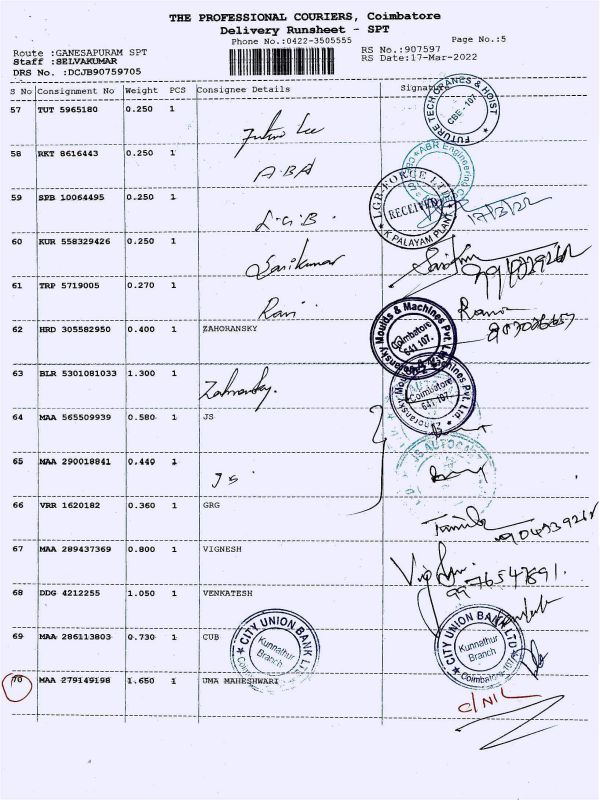 THE PROFESSIONAL COURIERS, Coimbatore
Delivery Runsheet - SPT
Phone No.:0422-3505555
Page No.:5
Route :GANESAPURAM SPT
RS No.:907597
Staff :SELVAKUMAR
RS Date:17-Mar-2022
DRS No. :DCJB90759705
S No Consignment No Weight PCS Consignee Details Signature
57 TUT 5965180 0.250 1
FUTURE TECH CRANES & HOIST
CBE-107
58 RKT 8616443 0.250 1 A.B.A
ABR Engineering
59 SPB 10064495 0.250 1 L.G.B.
LGB-FORGE LTD
RECEIVED
K PALAYAM PLANT
17/3/22
60 KUR 558329426 0.250 1 Sasikumar
61 TRP 5719005 0.270 1 Ravi
62 HRD 305582950 0.400 1 ZAHORANSKY
Zahoransky Moulds & Machines Pvt. Ltd.
Coimbatore
641 107.
63 BLR 5301081033 1.300 1 Zahoransky.
Zahoransky Moulds & Machines Pvt. Ltd.
Coimbatore
641 107.
64 MAA 565509939 0.580 1 JS
65 MAA 290018841 0.440 1 JS
JS AUTOCAST
66 VRR 1620182 0.360 1 GRG
67 MAA 289437369 0.800 1 VIGNESH
9976547891.
68 DDG 4212255 1.050 1 VENKATESH
69 MAA 286113803 0.730 1 CUB
CITY UNION BANK LTD
Kunnathur
Branch
CITY UNION BANK LTD
Kunnathur
Branch
Coimbatore-107
70 MAA 279149198 1.650 1 UMA MAHESHWARI
C/NIL